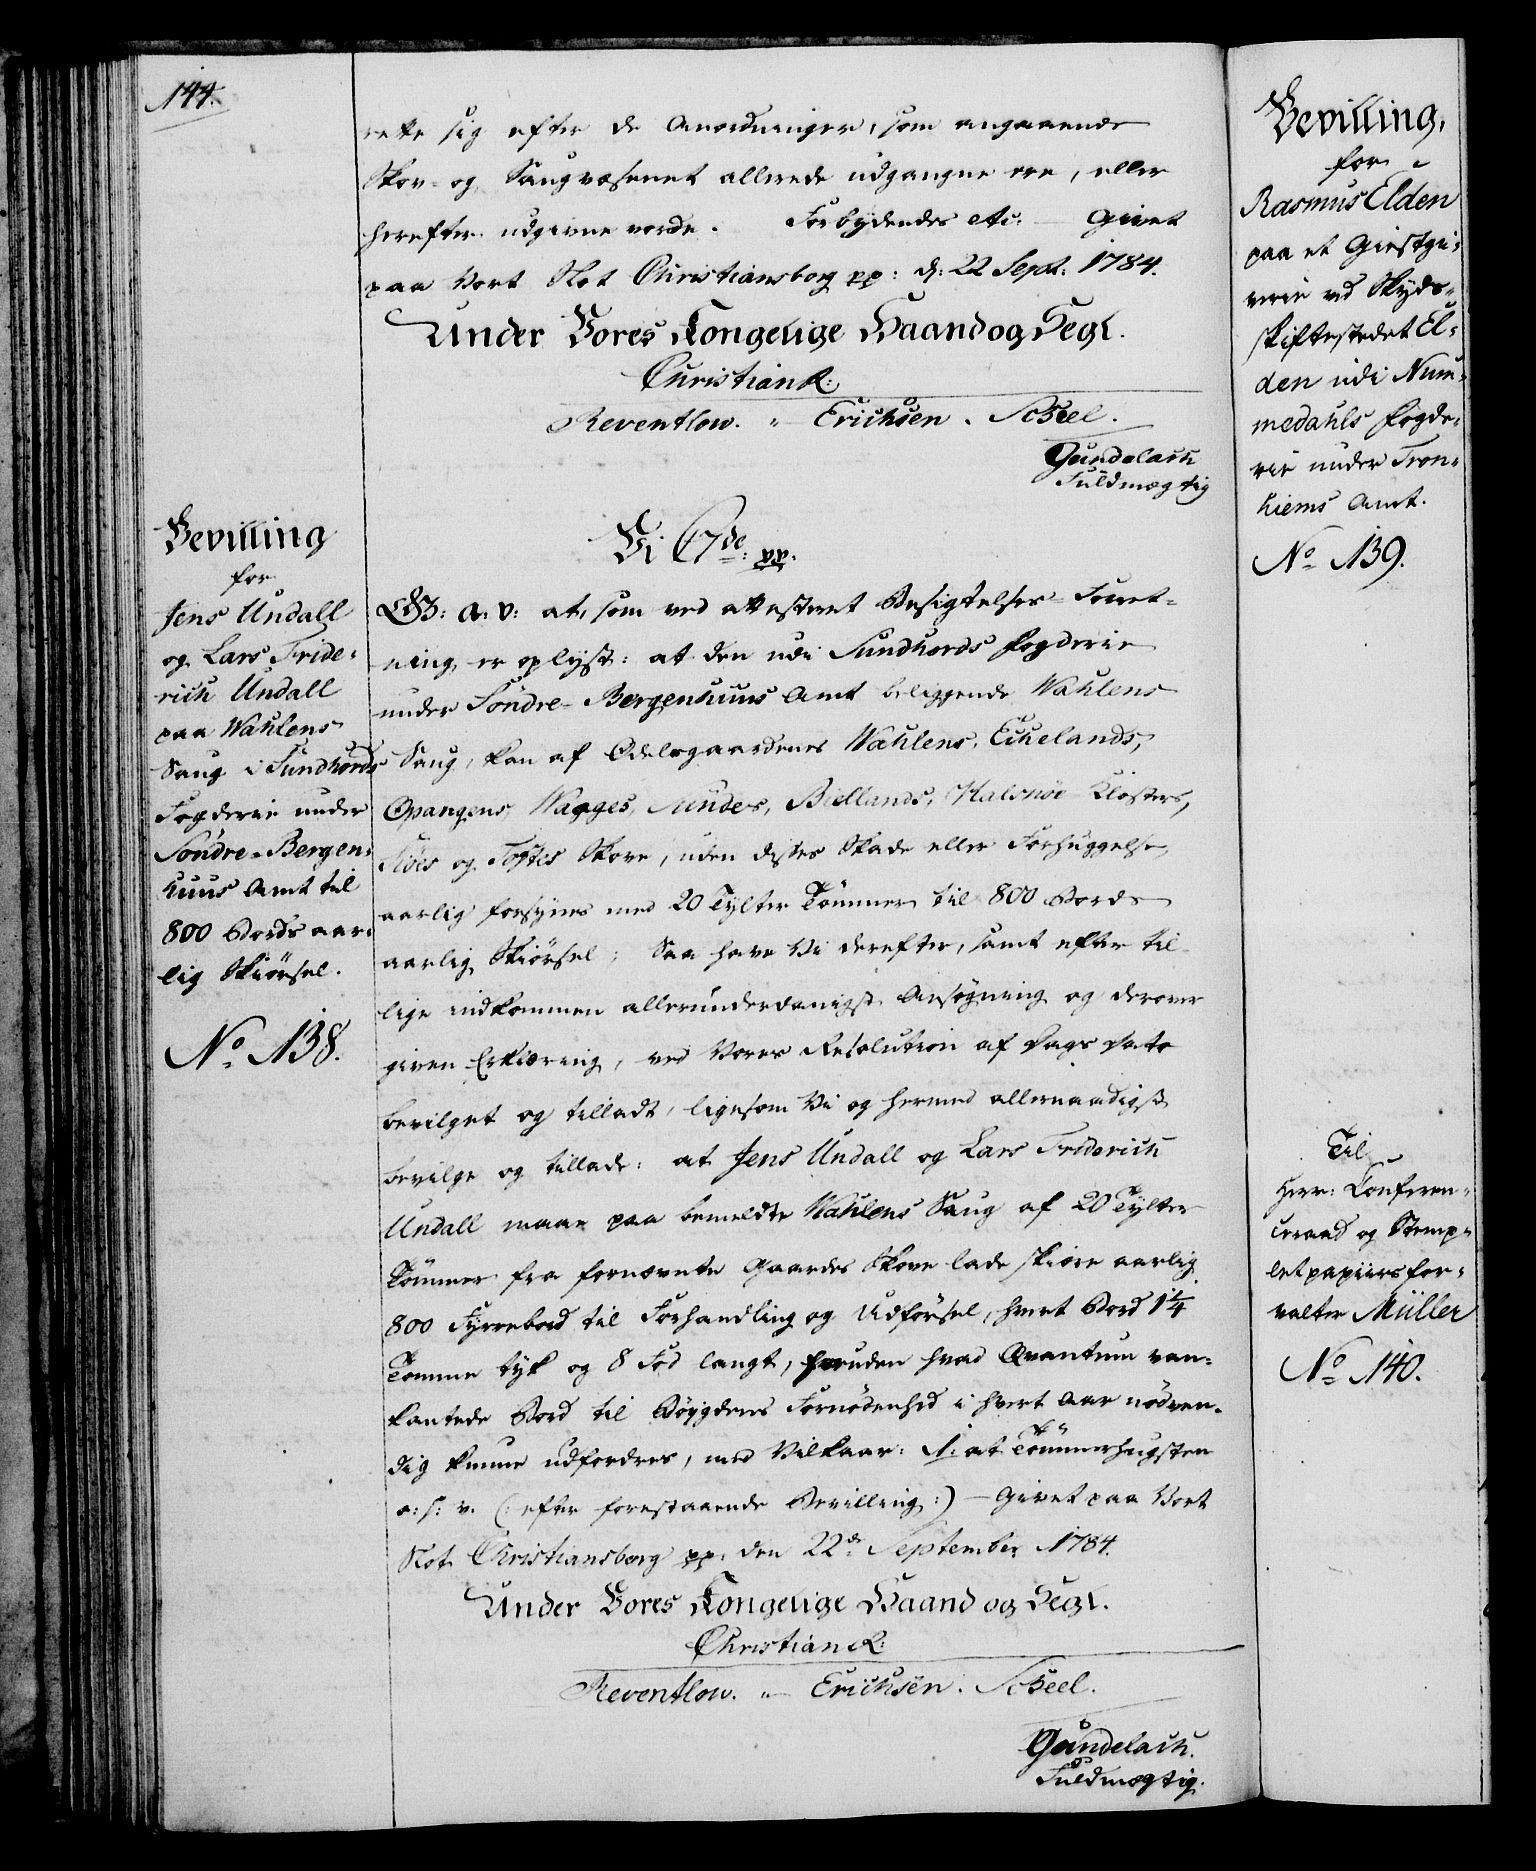 144.
rette sig efter de Anordninger, som angaaende
Skov- og Saugvæsenet allerede udgangne ere, eller
herefter udgivne vorde. Forbydendes etc: — Givet
paa Vort Slot Christiansborg pp: d: 22 Sept: 1784.
Under Vores Kongelige Haand og Segl.
Christian R:
Reventlow. " Erichsen. Scheel.
Gundelach
Fuldmægtig
Bevilling
for
Jens Undall
og Lars Fride-
rich Undall
paa Wahlens
Saug i Sundhords
Fogderie under
Söndre-Bergen-
huus Amt til
800 Bords aar-
lig Skiørsel.
No. 138.
Vi C 7de: pp.
G: A: V: at, som ved attesteret Besigtelses-Forret-
ning er oplyst: at den udi Sundhords Fogderie
under Söndre-Bergenhuus Amt beliggende Wahlens
Saug, kan af Odelsgaardenes Wahlens, Eikelands,
Opangens, Wagges, Biellands, Halsnöe Klosters,
og Toftes Skove, uden disses Skade eller Forhuggelse,
aarlig forsynes med 20 Tylter Tømmer til 800 Bords
aarlig Skiørsel; Saa have Vi derefter, samt efter til-
lige indkommen allerunderdanigst Ansøgning og derover
given Erklæring, ved Vores Resolution af Dags Dato
bevilget og tilladt, ligesom Vi og hermed allernaadigst
bevilge og tillade: at Jens Undall og Lars Friderich
Undall maae paa bemeldte Wahlens Saug af 20 Tylter
Tømmer fra fornævnte Gaardes Skove lade skiøre aarlig
800 Fyrrebord til Forhandling og Udförsel, hvert Bord 1 1/4
Tomme tyk og 8 Fod langt, foruden hvad Qvantum van-
kantede Bord til Böygdens Fornødenhed i hvert Aar nödven-
dig kunne udfordres, med Vilkaar: 1: at Tømmerhugsten
o: s: v. (: efter forestaaende Bevilling :) — Givet paa Vort
Slot Christiansborg pp: den 22de September 1784.
Under Vores Kongelige Haand og Segl.
Christian R:
Reventlow. " Erichsen. Scheel.
Gundelach.
Fuldmægtig.
Bevilling,
for
Rasmus Elden
paa et Giestgi-
verie ved Skyds-
skiftestedet El-
den udi Num-
medahls Fogde-
rie under Tron-
hiems Amt.
No. 139.
Til
Herr: Conferen-
ceraad og Stemp-
letpapiirsfor-
valter Müller
No. 140.